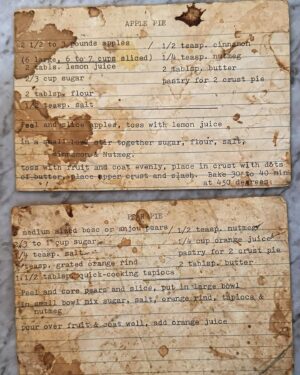 APPLE PIE
2 1/2 to 3 pounds apples / 1/2 teasp. cinnamon
(6 large, 6 to 7 cups sliced) 1/4 teasp. nutmeg
2 tabls. lemon juice 2 tablsp. butter
2/3 cup sugar pastry for 2 crust pie
2 tablsp. flour
teasp. salt
Peel and slice apples, toss with lemon juice
in a small bowl stir together sugar, flour, salt,
cinnamon & Nutmeg.
toss with fruit and coat evenly, place in crust with dots
of butter, place upper crust and Bake 30 to 40 min
at 450 degrees
PEAR PIE
medium sized bosc or anjou pears 1/2 teasp. nutmeg
2/3 to 1 cup sugar 1/4 cup orange juice
1/4 teasp. salt pastry for 2 crust pie
teasp. grated orange rind 2 tablsp. butter
1 1/2 tablsp. quick-cooking tapioca
Peel and core pears and slice, put in large bowl
in small bowl mix sugar, salt, orange rind, tapioca &
nutmeg
pour over fruit & coat well, add orange juice